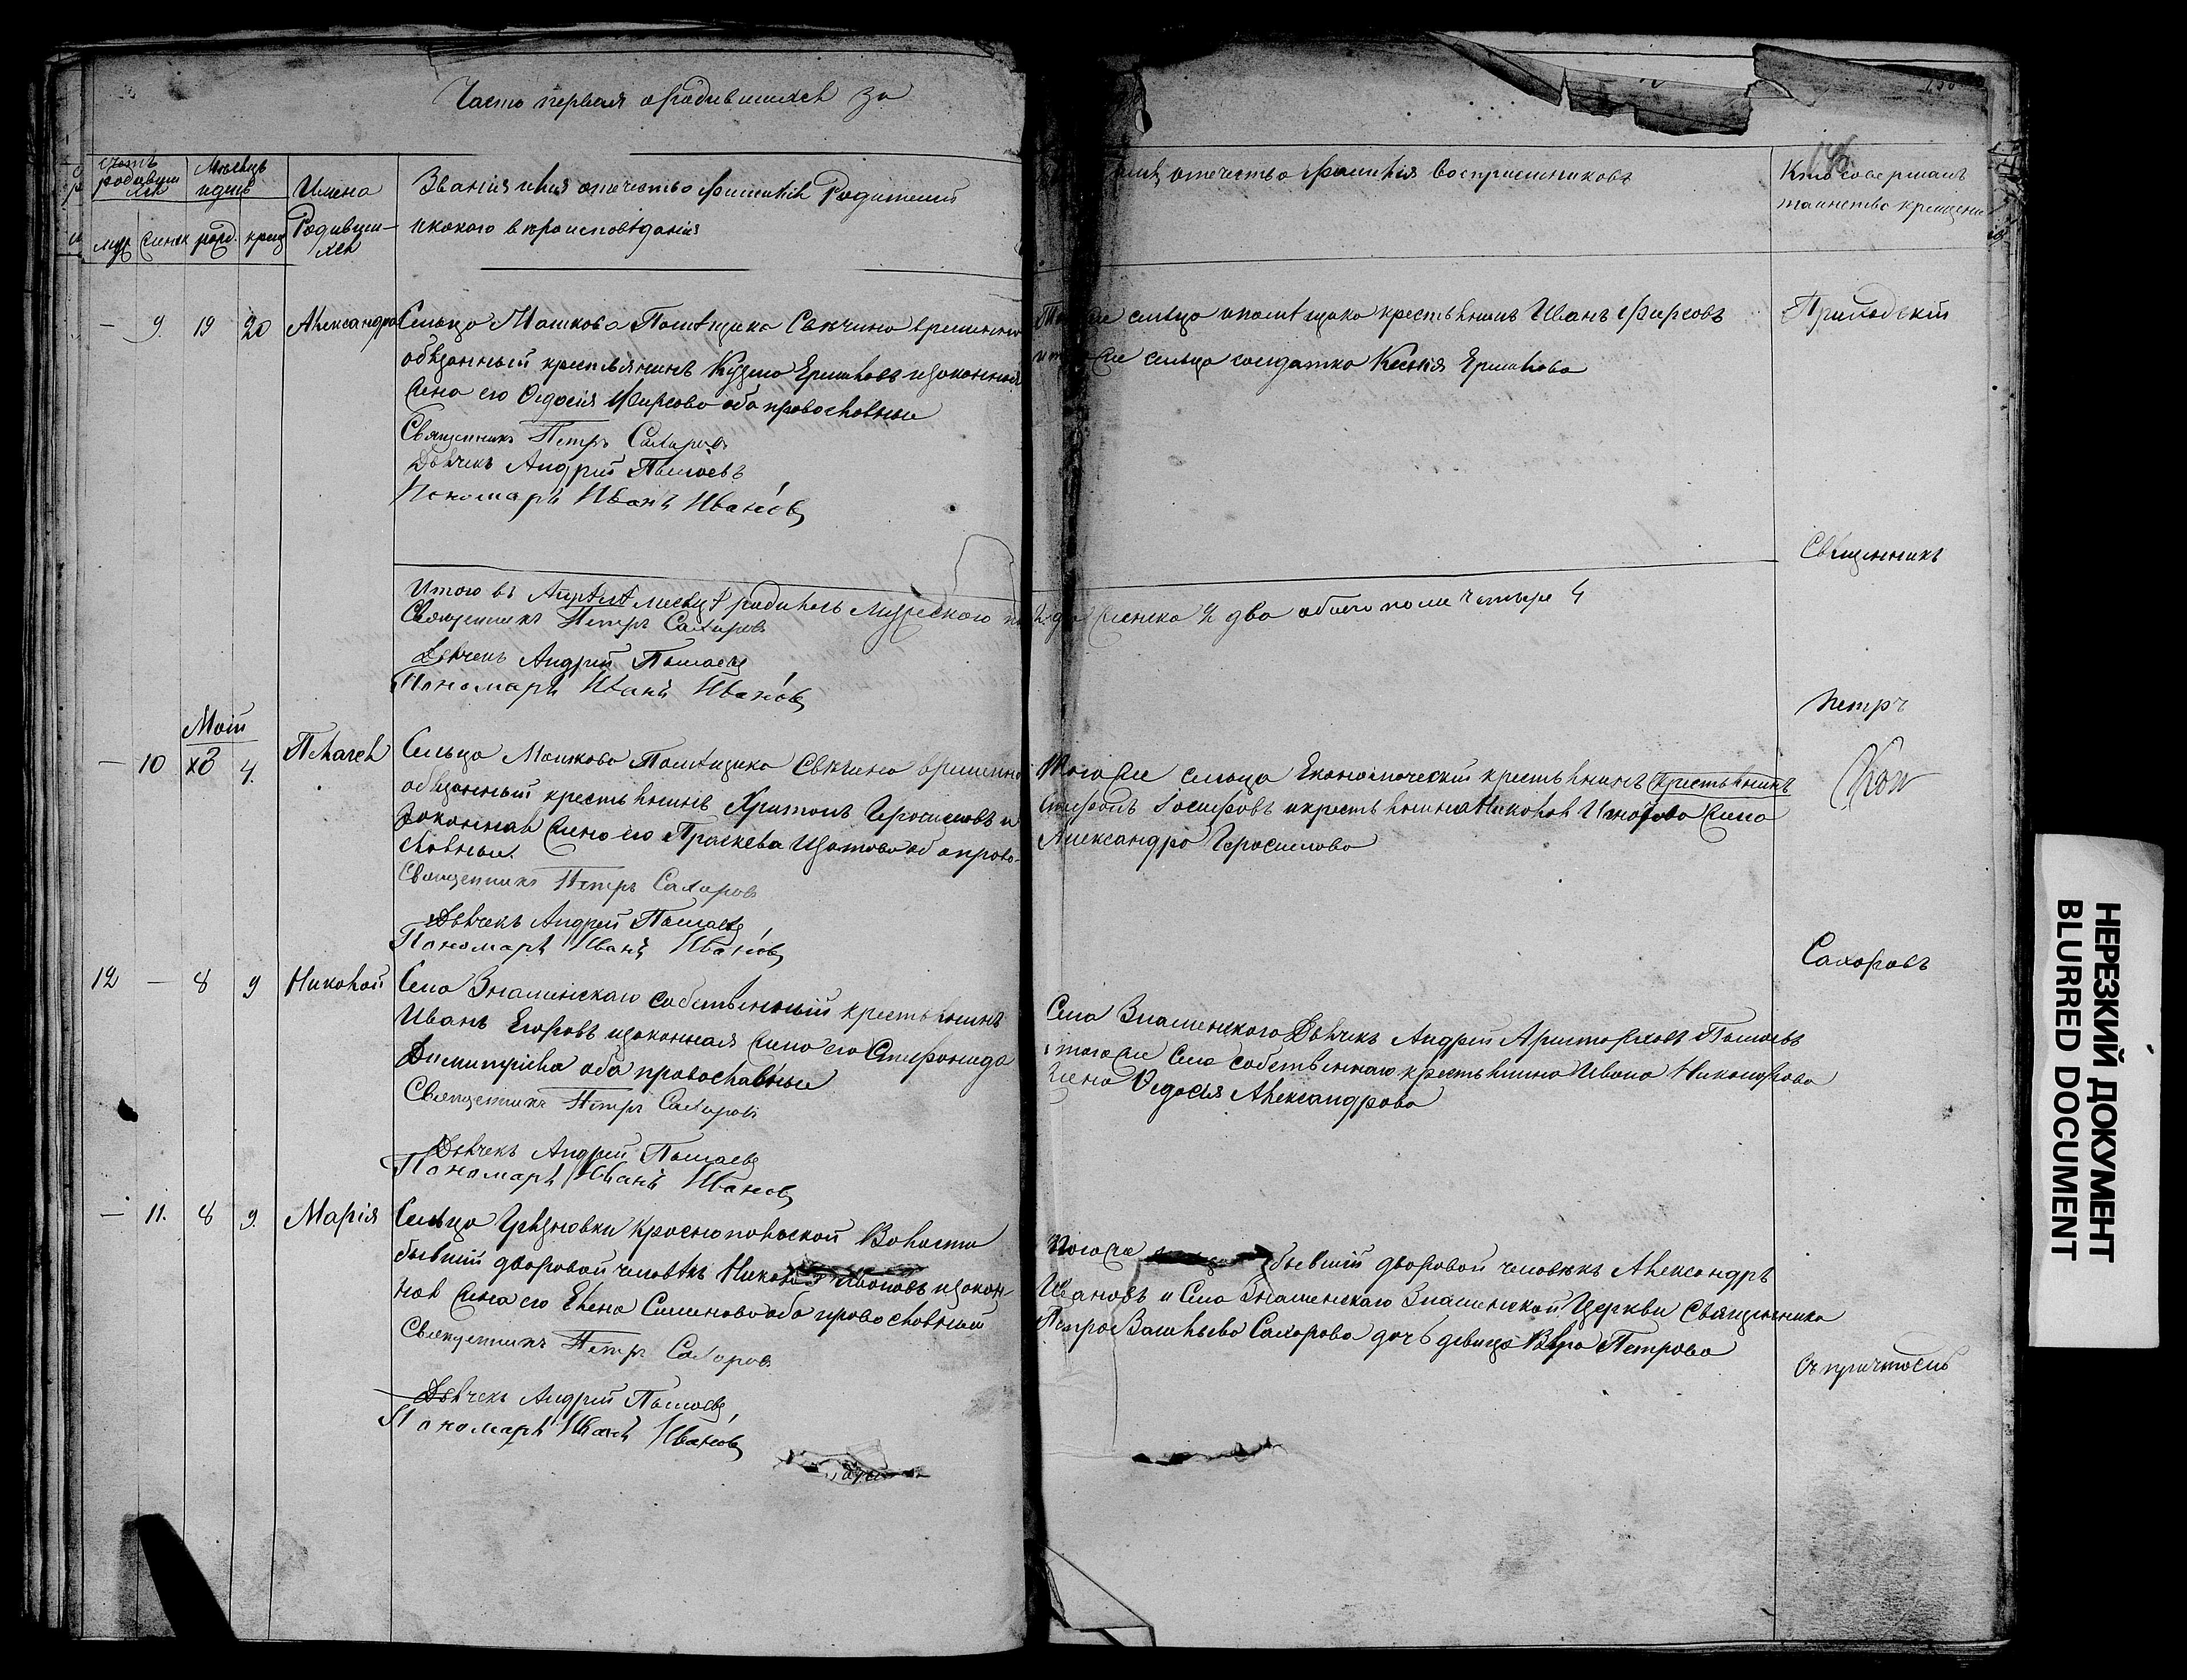 Часть первая ородившихся за
счетъ родившихся
Месяцъ идень
Имена Родившихся
муж женск рожд. крещ
Званія имя отечество фамилія Родителей
икокого вероисповѣданія
отечество фамилія Восприемниковъ
Кто совершалъ
таинство крещения
— 9. 19 20 Александра
Сельца Машкова Помѣщика Свечина временно
обязанный крестьянинъ Кузма Ермиловъ изаконная
жена его Ѳедосія Фирсова оба православные
Священникъ Петръ Сахаровъ
Дьячекъ Андрей Пытаевъ
Пономарь Иванъ Ивановъ
сельца ипомѣщика крестьянинъ Иванъ Фирсовъ
сельца солдатка Ксенія Ермилова
Приходскій
Священникъ
Петръ
Сахоровъ
съ причтомъ
Итого въ Апрѣлѣ месяцѣ родилось мужескаго
женска 2 два обоего пола четыре 4
Священникъ Петръ Сахаровъ
Дьячекъ Андрей
Пономарь Иванъ Ивановъ
Май
— 10 3 4. Пелагея
Сельца Машкова Помѣщика Свечина временно
обязанный крестьянинъ Харитонъ Герасимовъ и
законная жена его Праскева Изотова оба право-
славные.
Священникъ Петръ Сахаровъ
Дьячекъ Андрей
Пономарь Иванъ Ивановъ
Тогоже сельца Економический крестьянинъ крестьянинъ
икрестьянина Николая Игнатова жена
Александра Герасимова
12 — 8 9 Николай
Села Знаменскаго собственный крестьянинъ
Иванъ Егоровъ изаконная жена его Стефанида
Димитріева оба православные
Священникъ Петръ Сахаровъ
Дьячекъ Андрей
Пономарь Иванъ Ивановъ
Села Знаменскаго Дьячекъ Андрей Аристарховъ
тогоже села собственнаго крестьянина Ивана Никанорова
жена Ѳедосия Александрова
— 11. 8 9. Марія
Сельца Краснопольской Волости
бывшій дворовой человѣкъ изакон-
ная жена его Елена Симеонова оба православный
Священникъ Петръ Сахаровъ
Дьячекъ Андрей
Пономарь Иванъ Ивановъ
Тогоже бывшій дворовой человѣкъ Александръ
Ивановъ и Села Знаменскаго Знаменской Церкви Священника
Петра Васильева Сахорова дочь девица Вѣра Петрова
НЕРЕЗКИЙ ДОКУМЕНТ
BLURRED DOCUMENT